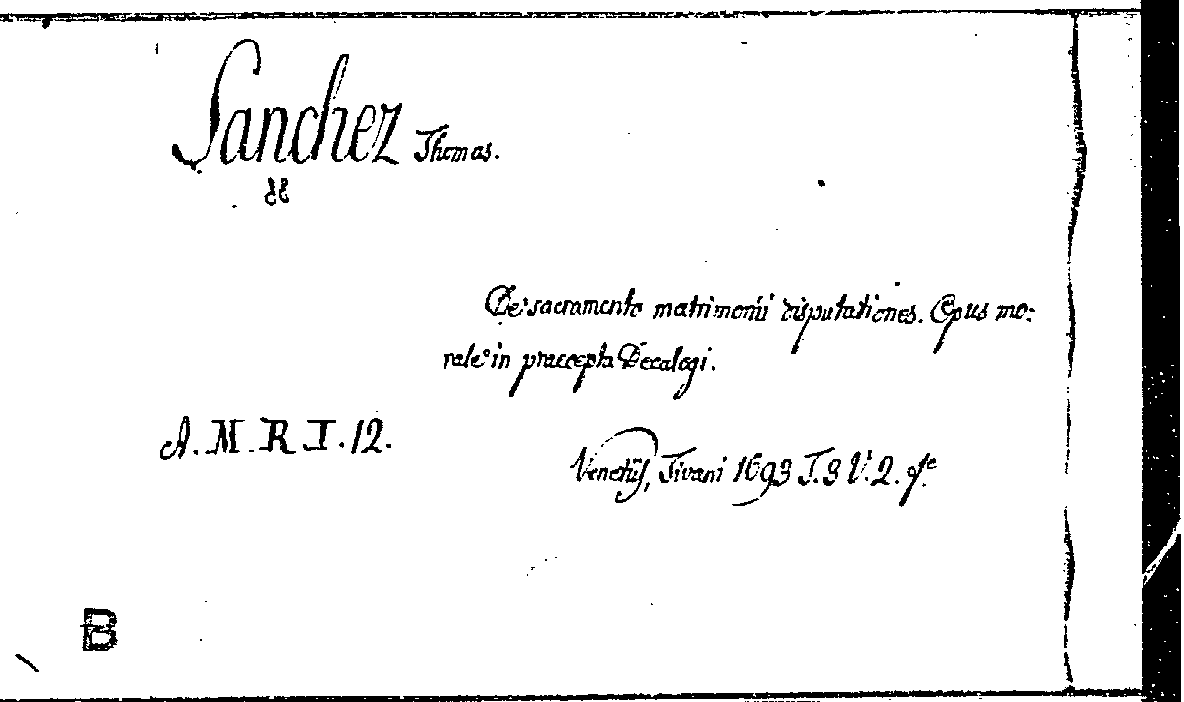 Sanchez Thomas.
De sacramento matrimonii disputationes. Opus mo:
rale in praecepta Decalogi.
A. M. R. I. 12.
Venetiis, Tivani 1693 T. 3 V. 2. f.º
B